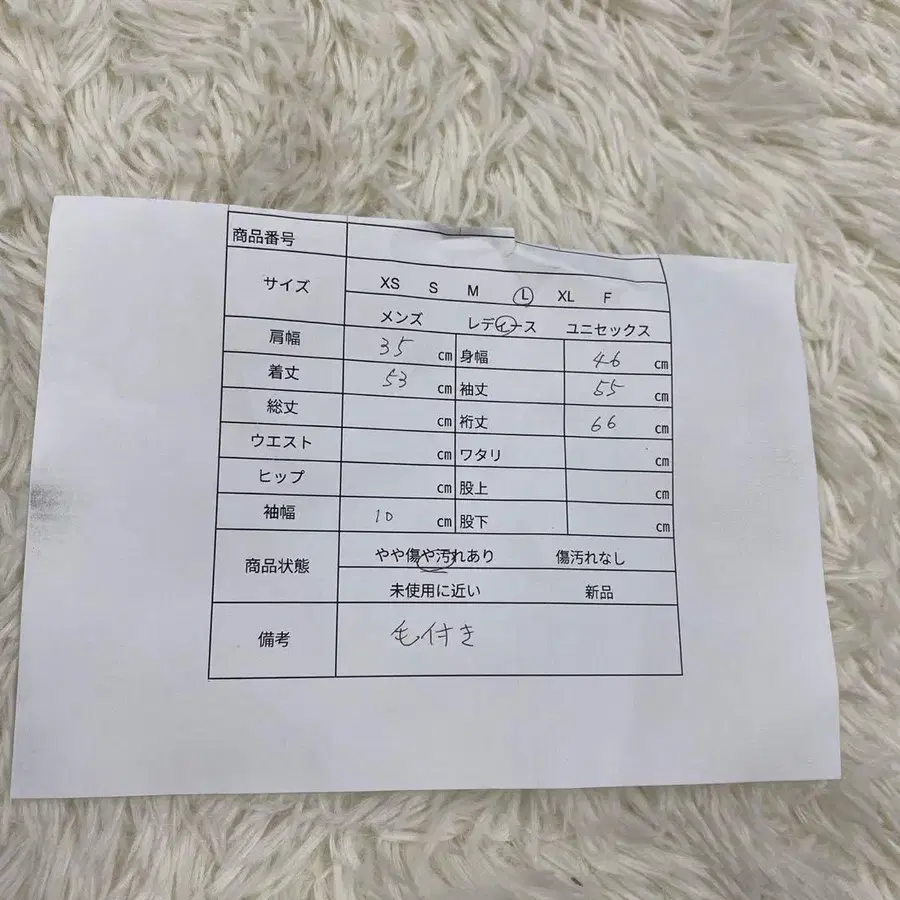 商品番号
サイズ XS S M L XL F
メンズ レディース ユニセックス
肩幅 35 cm 身幅 46 cm
着丈 53 cm 袖丈 55 cm
総丈 cm 裄丈 66 cm
ウエスト cm ワタリ cm
ヒップ cm 股上 cm
袖幅 10 cm 股下 cm
商品状態 やや傷や汚れあり 傷汚れなし
未使用に近い 新品
備考 毛付き